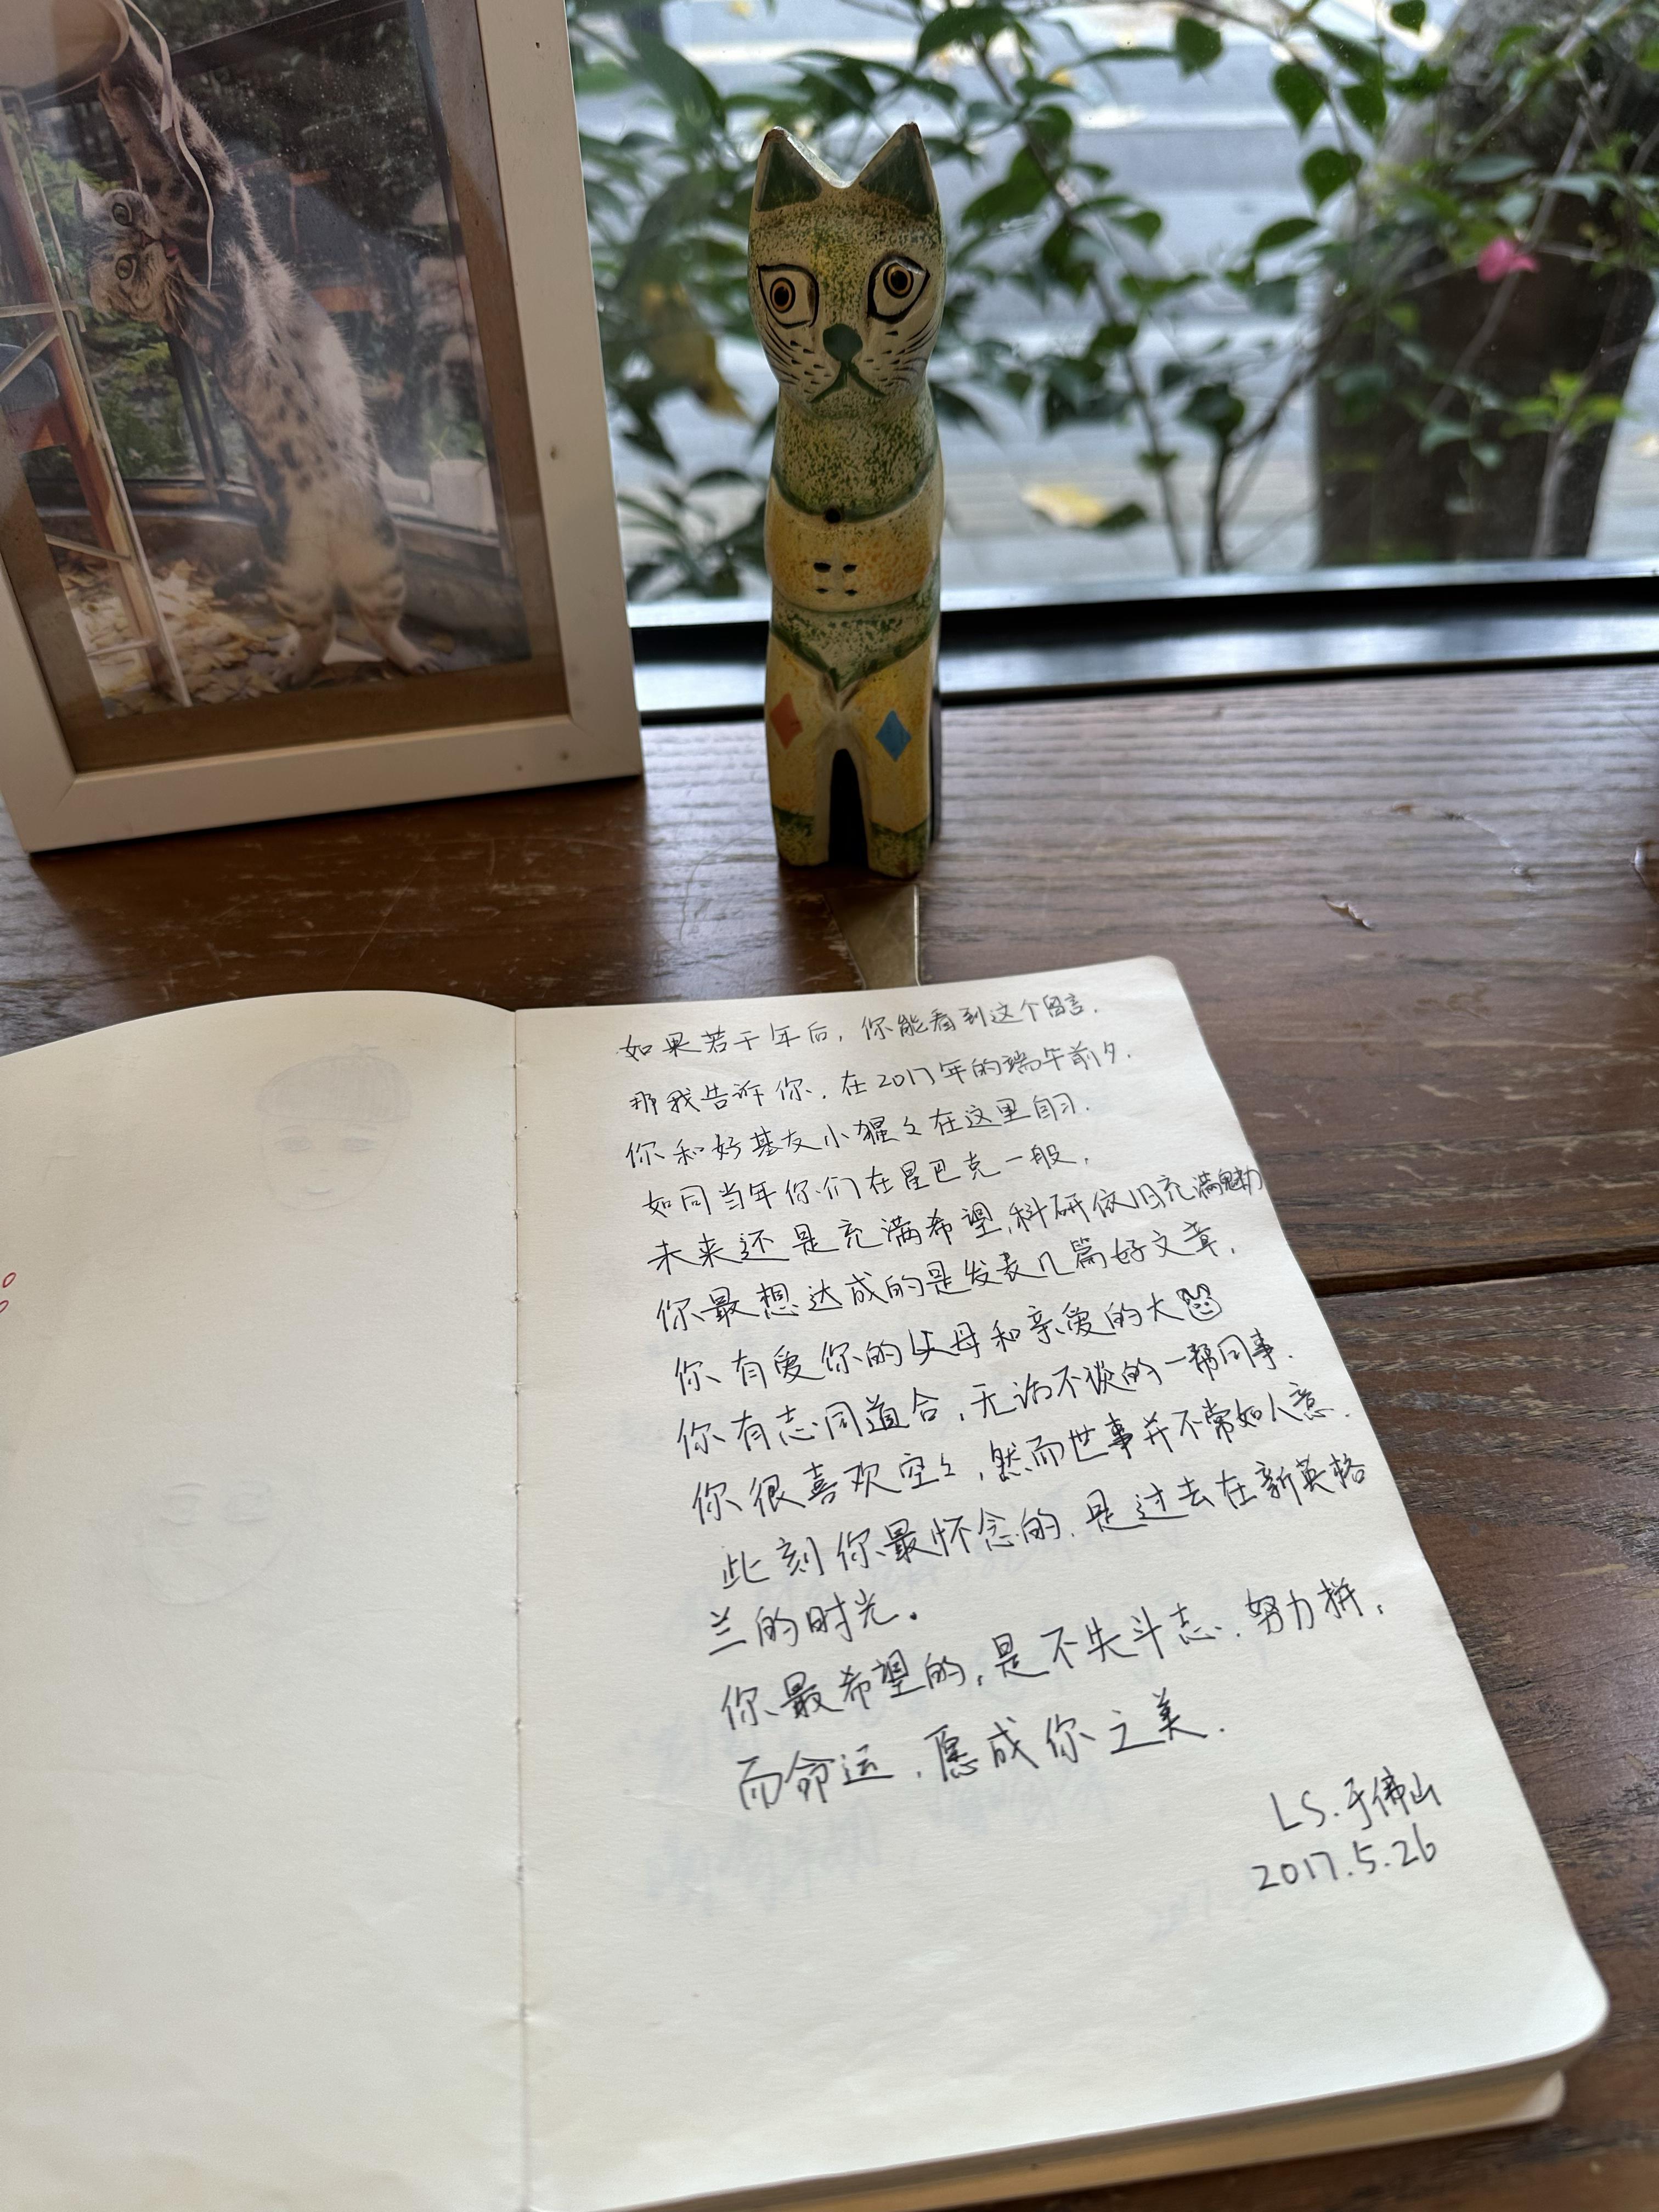 如果若干年后，你能看到这个留言.
那我告诉你，在2017年的端午前夕.
你和好基友小猩々在这里自习.
如同当年你们在星巴克一般，
未来还是充满希望，科研依旧充满魅力
你最想达成的是发表几篇好文章，
你有爱你的父母和亲爱的大
你有志同道合，无话不谈的一帮同事.
你很喜欢空々，然而世事并不常如人意.
此刻你最怀念的，是过去在新英格
兰的时光。
你最希望的，是不失斗志，努力拼，
而命运，愿成你之美.
LS.于佛山
2017.5.26